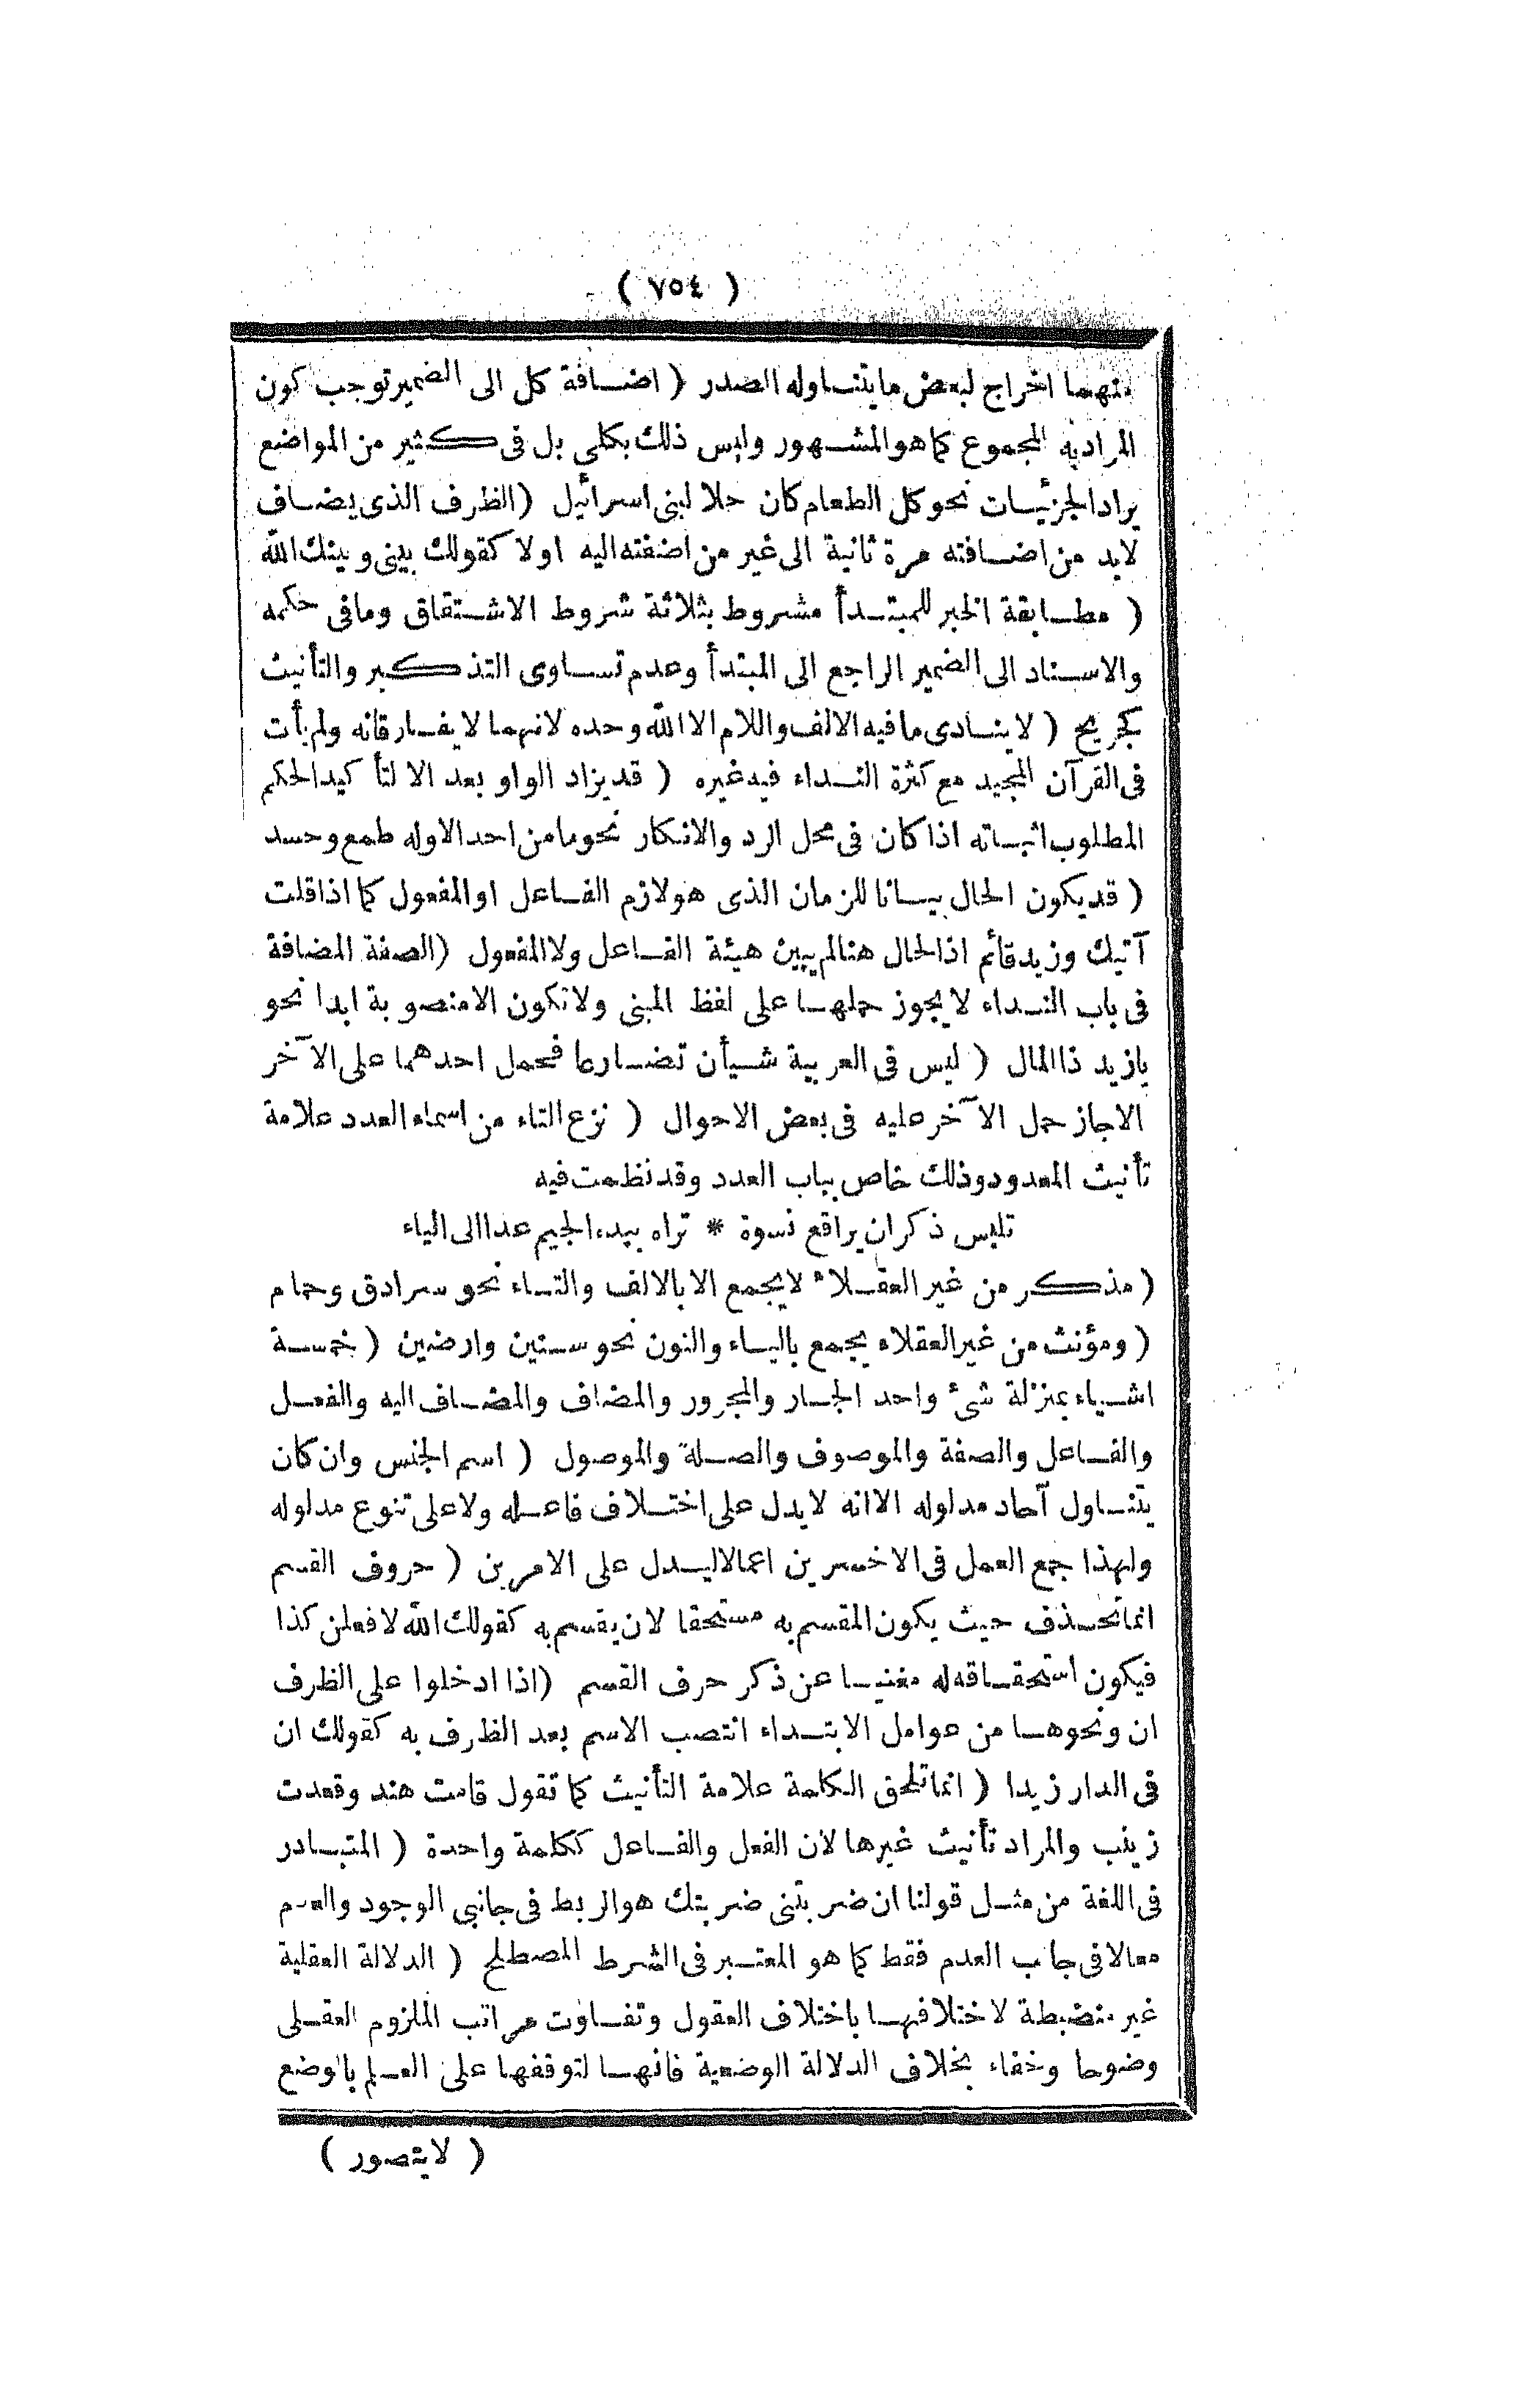 ( ٧٥٤ )
منهما اخراج لبعض ما يتناوله الصدر ( اضافة كل الى الضمير توجب كون
المراد به المجموع كما هو المشهور وليس ذلك بكلي بل فى كثير من المواضع
يراد الجزئيات نحو كل الطعام كان حلا لبنى اسرائيل ( الظرف الذى يضاف
لابد من اضافته مرة ثانية الى غير من اضفته اليه اولا كقولك بينى وبينك الله
( مطابقة الخبر للمبتدأ مشروط بثلاثة شروط الاشتقاق وما فى حكمه
والاسناد الى الضمير الراجع الى المبتدأ وعدم تساوى التذكير والتأنيث
كجريح ( لا ينادى ما فيه الالف واللام الا الله وحده لانهما لا يفارقانه ولم يأت
فى القرآن المجيد مع كثرة النداء فيه غيره ( قد يزاد الواو بعد الا لتأكيد الحكم
المطلوب اثباته اذا كان فى محل الرد والانكار نحو ما من احد الاوله طمع وحسد
( قد يكون الحال بيانا للزمان الذى هو لازم الفاعل او المفعول كما اذا قلت
آتيك وزيد قائم اذ الحال هنا لم يبين هيئة الفاعل ولا المفعول ( الصفة المضافة
فى باب النداء لا يجوز حملها على لفظ المبنى ولا تكون الا منصوبة ابدا نحو
يا زيد ذا المال ( ليس فى العربية شيأن تضارعا فحمل احدهما على الآخر
الا جاز حمل الآخر عليه فى بعض الاحوال ( نزع التاء من اسماء العدد علامة
تأنيث المعدود وذلك خاص بباب العدد وقد نظمت فيه
تلبس ذكران براقع نسوة * تراه ببدء الجيم عدا الى الياء
( مذكر من غير العقلاء لا يجمع الا بالالف والتاء نحو سرادق وحمام
( ومؤنث من غير العقلاء يجمع بالياء والنون نحو سنين وارضين ( خمسة
اشياء بمنزلة شئ واحد الجار والمجرور والمضاف والمضاف اليه والفعل
والفاعل والصفة والموصوف والصلة والموصول ( اسم الجنس وان كان
يتناول آحاد مدلوله الا انه لا يدل على اختلاف فاعله ولا على تنوع مدلوله
ولهذا جمع العمل فى الاخسرين اعمالا ليدل على الامرين ( حروف القسم
انما تحذف حيث يكون المقسم به مستحقا لان يقسم به كقولك الله لافعلن كذا
فيكون استحقاقه له مغنيا عن ذكر حرف القسم ( اذا ادخلوا على الظرف
ان ونحوها من عوامل الابتداء انتصب الاسم بعد الظرف به كقولك ان
فى الدار زيدا ( انما تلحق الكلمة علامة التأنيث كما تقول قامت هند وقعدت
زينب والمراد تأنيث غيرها لان الفعل والفاعل ككلمة واحدة ( المتبادر
فى اللغة من مثل قولنا ان ضربتنى ضربتك هو الربط فى جانبى الوجود والعدم
معا لا فى جانب العدم فقط كما هو المعتبر فى الشرط المصطلح ( الدلالة العقلية
غير منضبطة لاختلافها باختلاف العقول وتفاوت مراتب الملزوم العقلى
وضوحا وخفاء بخلاف الدلالة الوضعية فانها لتوقفها على العلم بالوضع
( لا يتصور )